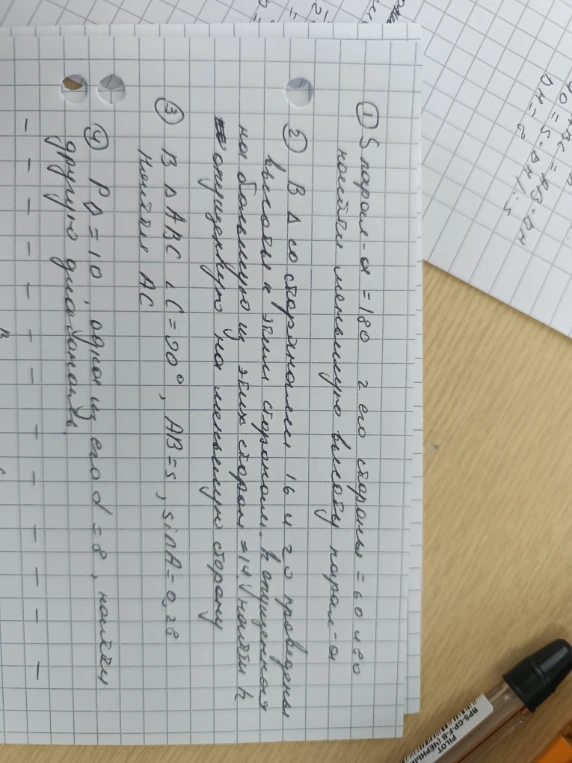 ① S парал-а = 180 2 его стороны = 60 и 20
найти меньшую высоту парал-а
② В Δ со сторонами 16 и 20 проведены
высоты к этим сторонам. h опущенная
на большую из этих сторон = 14. найти h
опущенную на меньшую сторону
③ В Δ ABC ∠C = 90°, AB = 5, sin A = 0,28
найти AC
④ = 10, одна из его d = 8, найти
другую диагональ.
DH = 8
PILOT
BPS-GP-F-B